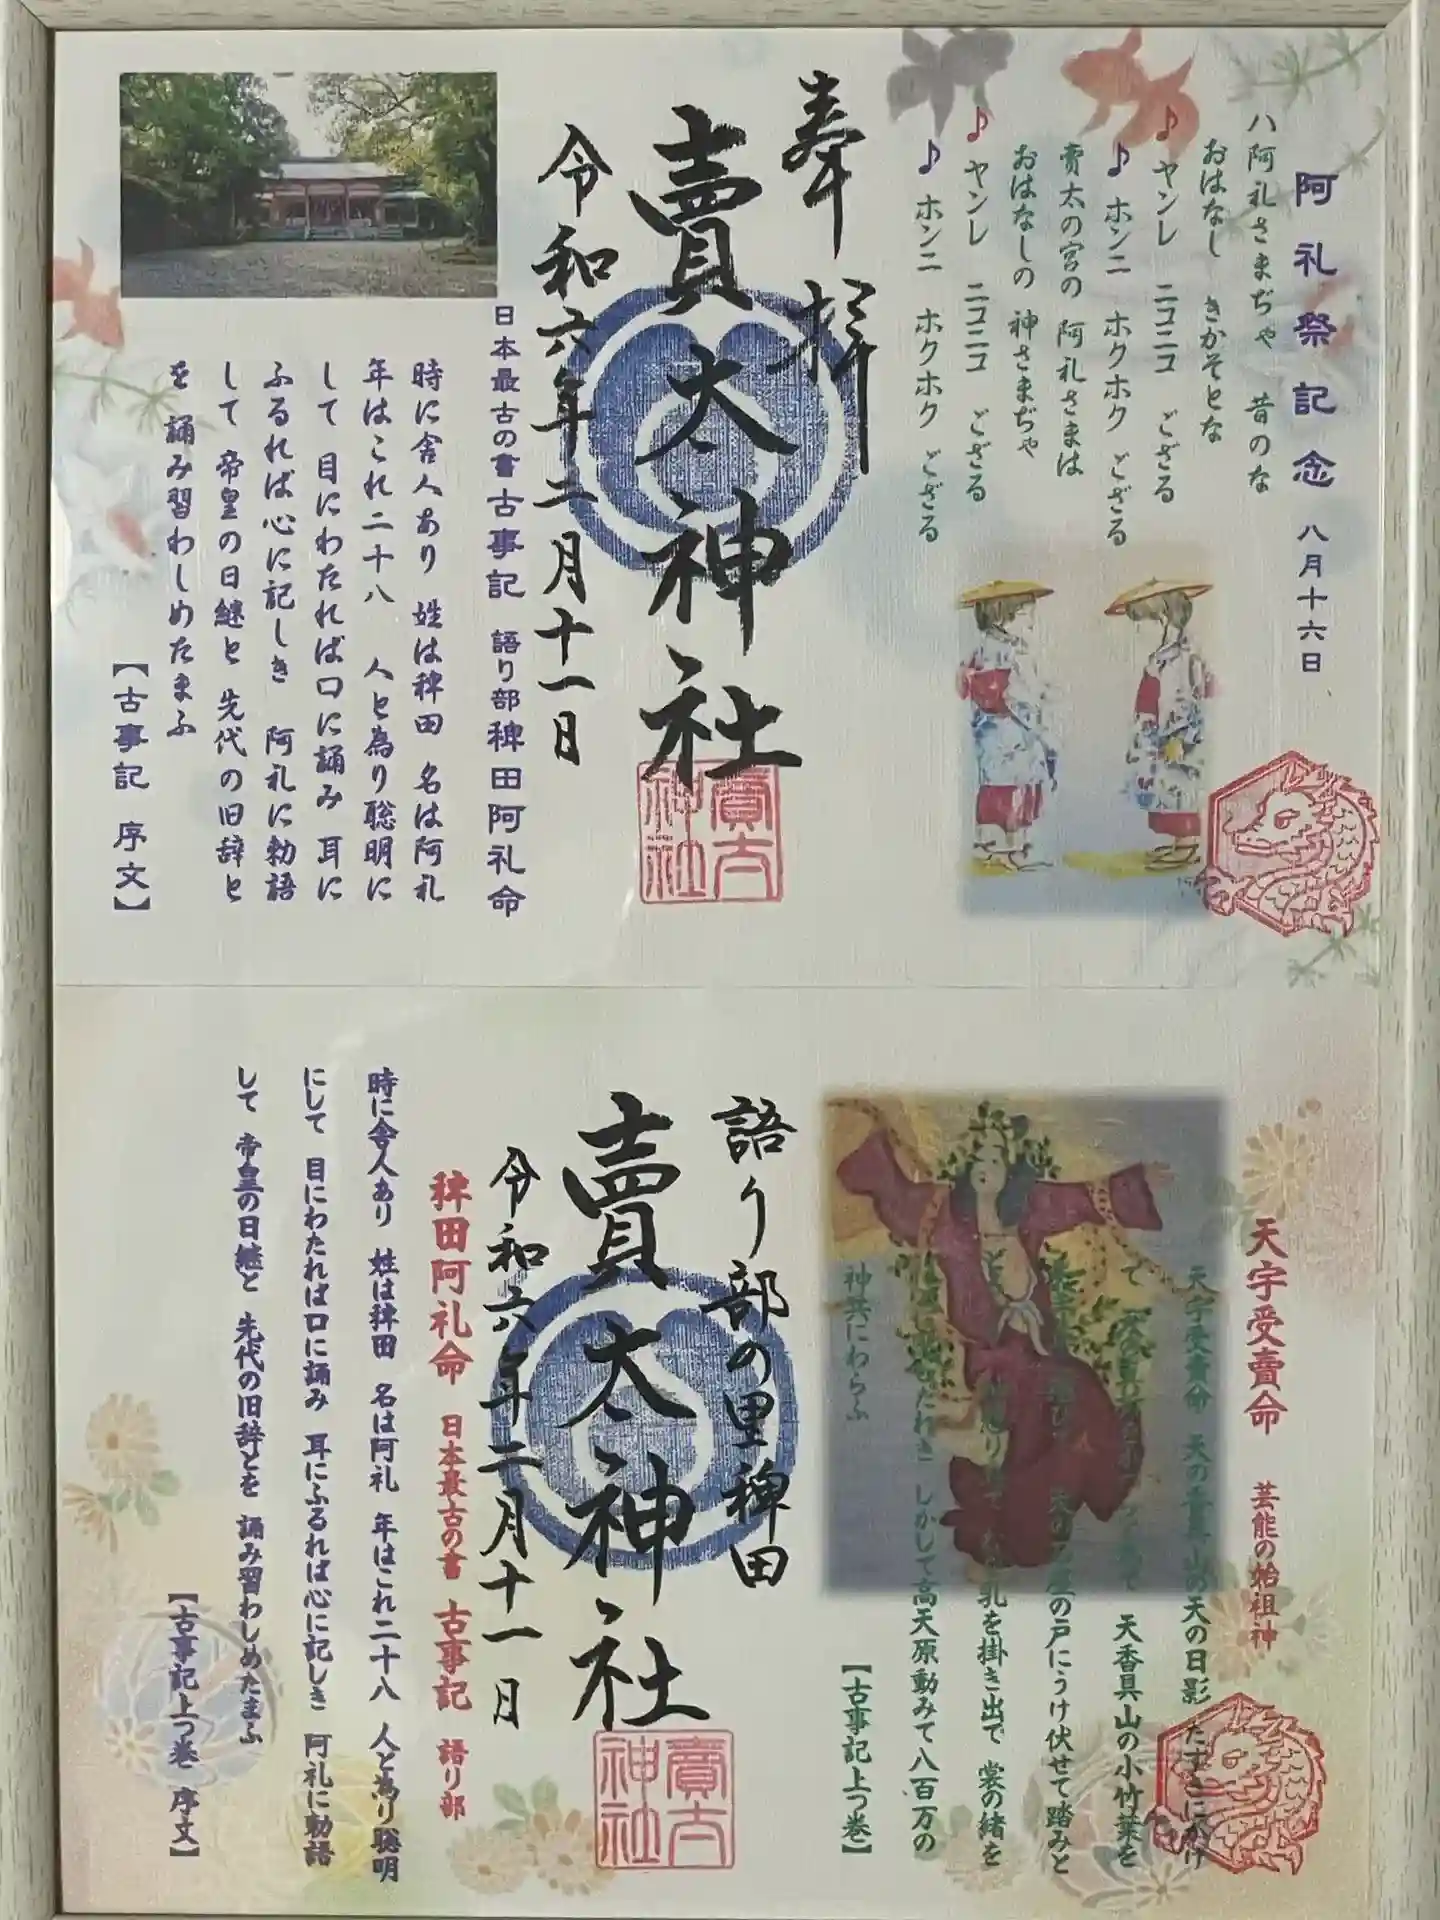 阿礼祭記念 八月十六日
八阿礼さまぢや 昔のな
おはなし きかそとな
♪ ヤンレ ニコニコ ござる
♪ ホンニ ホクホク ござる
賣太の宮の 阿礼さまは
おはなしの 神さまぢや
♪ ヤンレ ニコニコ ござる
♪ ホンニ ホクホク ござる
奉拝
賣太神社
賣太神社
令和六年二月十一日
日本最古の書古事記 語り部稗田阿礼命
時に舎人あり 姓は稗田 名は阿礼
年はこれ二十八 人と為り聡明に
して 目にわたれば口に誦み 耳に
ふるれば心に記しき 阿礼に勅語
して 帝皇の日継と 先代の旧辞と
を 誦み習わしめたまふ
【古事記 序文】
天宇受賣命 芸能の始祖神
天宇受賣命 天の香具山の天の日影 たすきにかけ
て 天の真 天香具山の小竹葉を
の戸にうけ伏せて踏みと
乳を掛き出で 裳の緒を
たれき しかして高天原動みて八百万の
神共にわらふ
【古事記上つ巻】
語り部の里稗田
賣太神社
賣太神社
令和六年二月十一日
稗田阿礼命 日本最古の書 古事記 語り部
時に舎人あり 姓は稗田 名は阿礼 年はこれ二十八 人と為り聡明
にして 目にわたれば口に誦み 耳にふるれば心に記しき 阿礼に勅語
して 帝皇の日継と 先代の旧辞とを 誦み習わしめたまふ
【古事記上つ巻 序文】